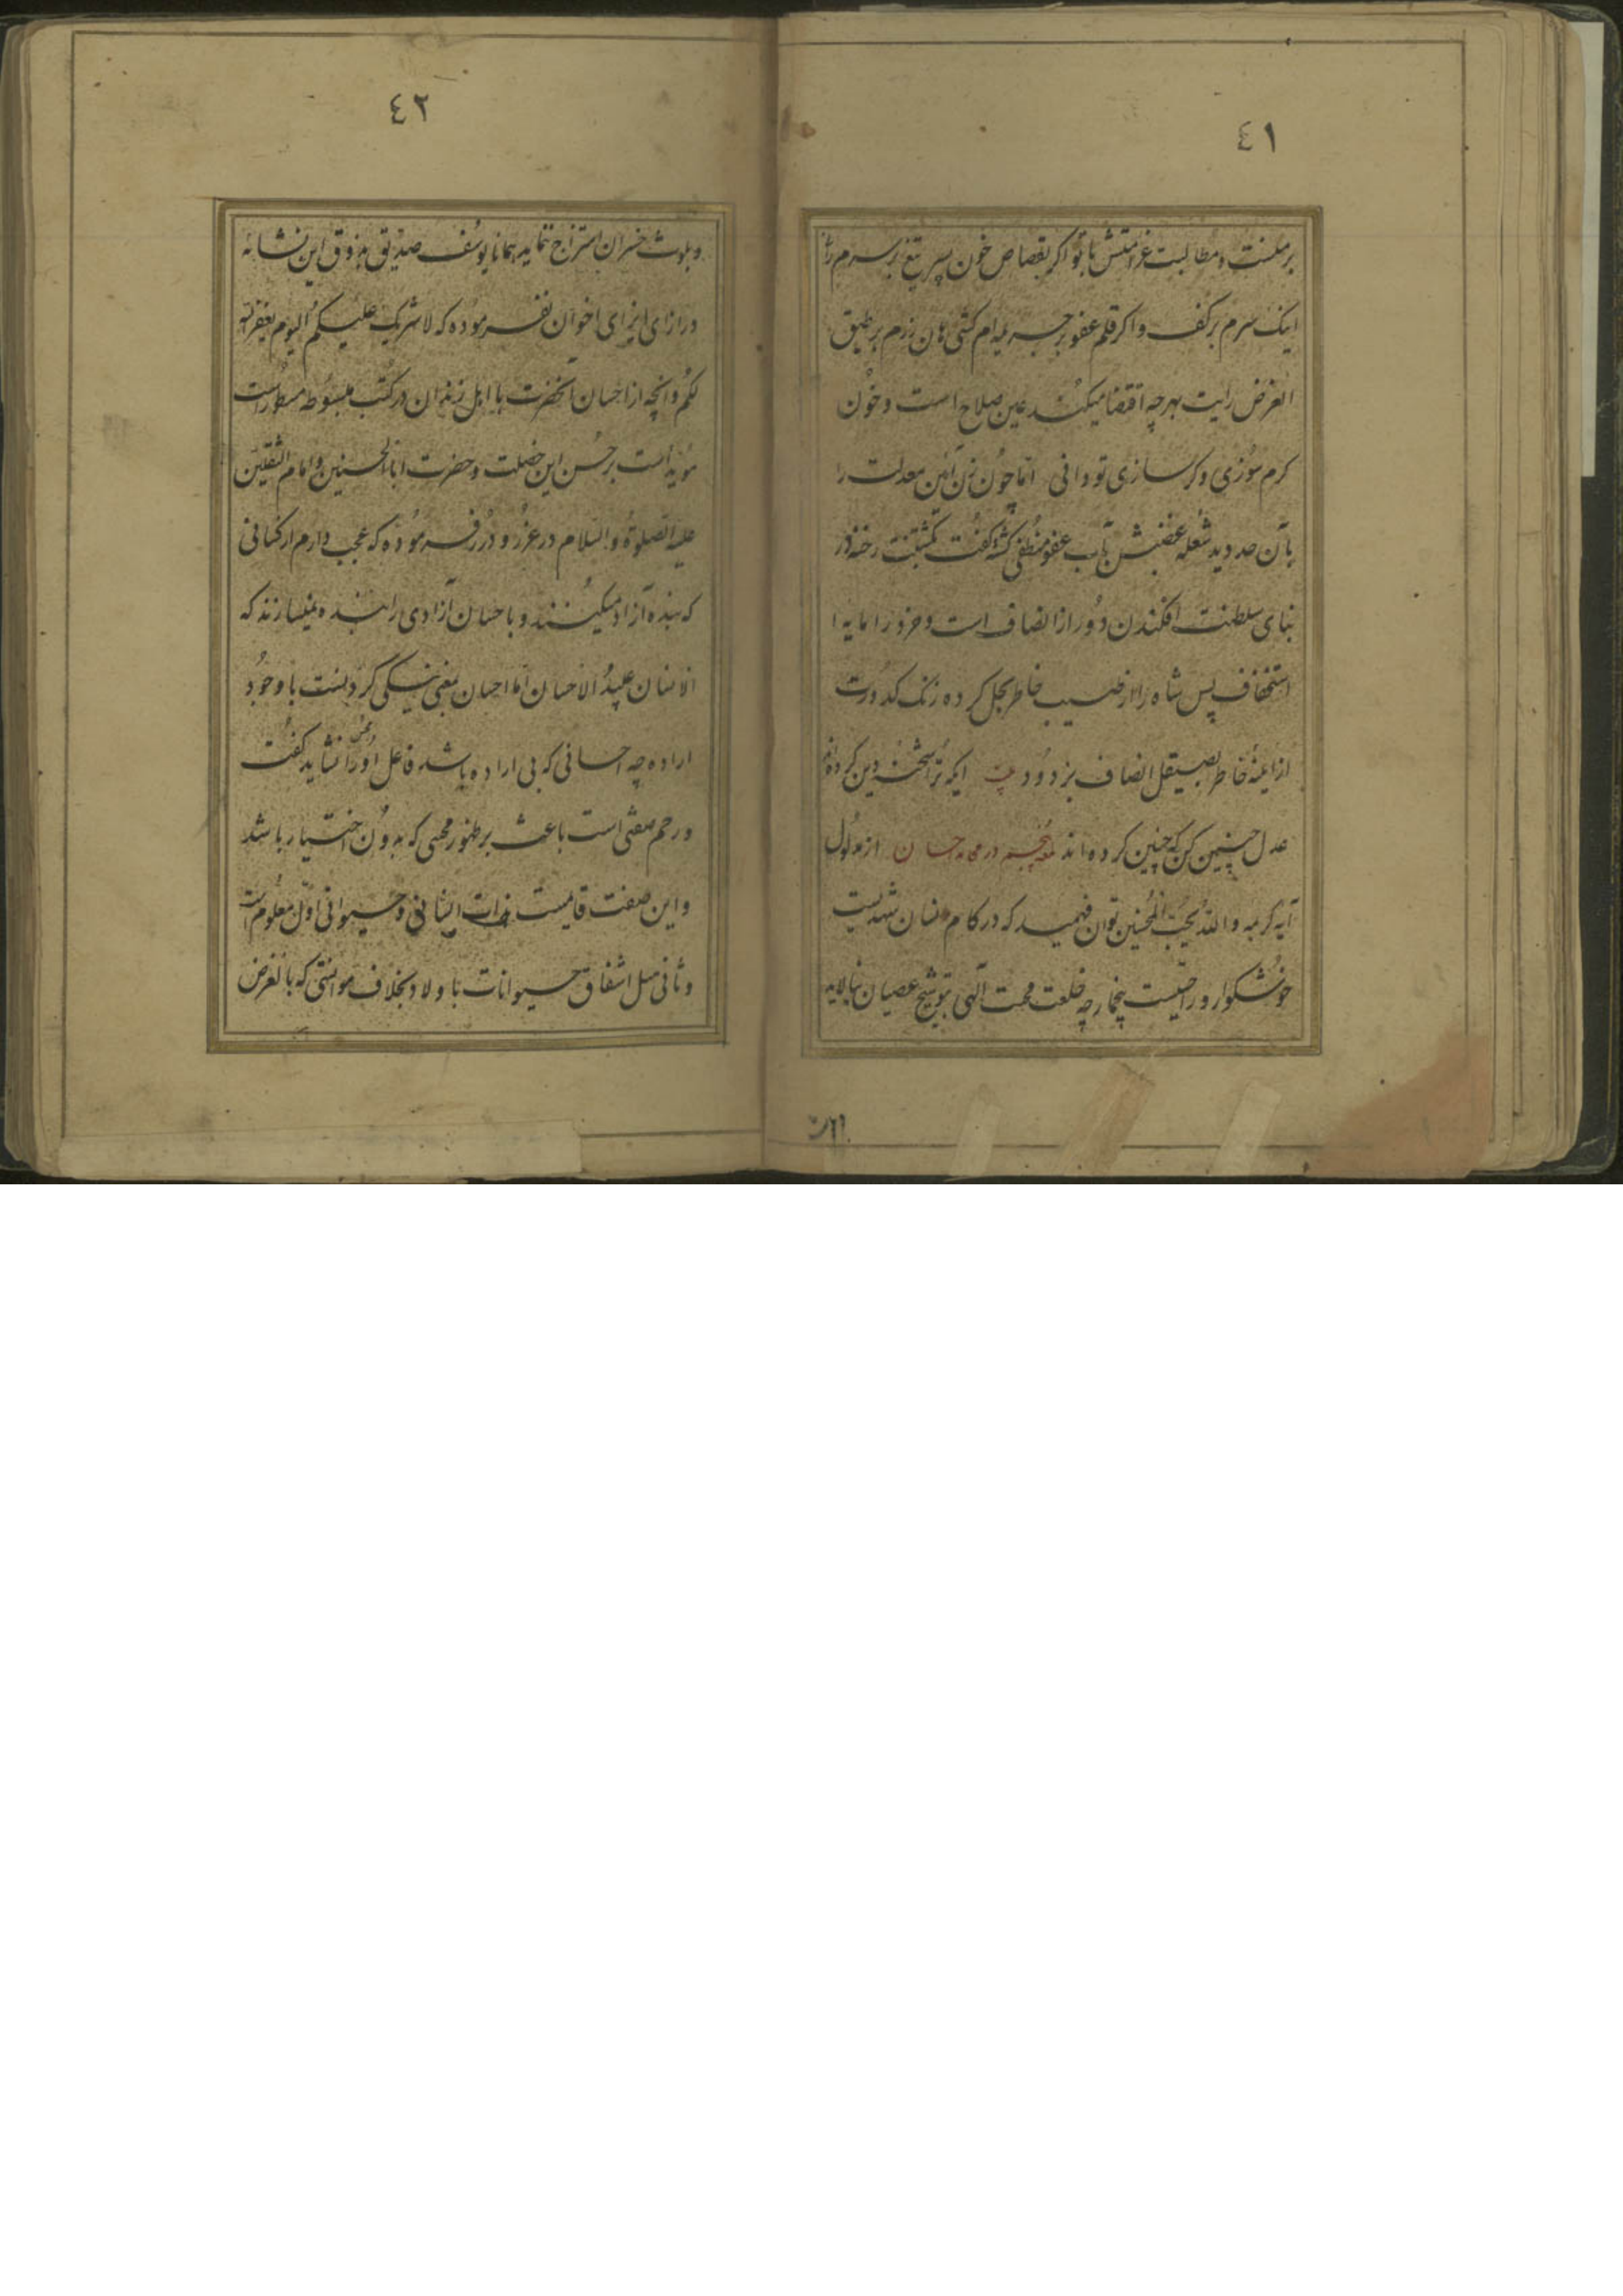 ٤١
برمنست و مطالبت غرامتش با تو اگر بقصاص خون پسر تیغ بر سرم رانی
اینک سرم بر کف و اگر قلم عفو بر جریده ام کشی هان زرم بر طبق
الغرض رایت بهرچه اقتضا میکند عین صلاح است و خون
کرم سوزی و کر سازی تو دانی اما چون زن آئین معدلت را
بآن حد دید شعله غضبش بآب عفو منطفی کشته کفت کمشتنت رخنه در
بنای سلطنت افکندن دور از انصاف است و خرد را مایه
استخفاف پس شاه را از خاطر بحل کرده زنک کدورت
از آینه خاطر بصیقل انصاف بزدود ایکه ترا شحنه دین کرده اند
عدل چنین کن که چنین کرده اند پنجم در احسان از مدلول
آیه کریمه و الله یحب المحسنین توان فهمید که در کام انسان شهدیست
خوشکوار و راحیست چه خلعت محبت آلهی بتوشیح عصیان نیالاید
٤٢
و بلوث خسران امتزاج ننماید همانا یوسف صدیق بذوق این نشانه
در ازای ایذای اخوان نفرموده که لا تثریب علیکم الیوم یغفر الله
لکم و آنچه از احسان آنحضرت با اهل زندان در کتب مبسوطه مسطور است
مؤید است بر حسن این خصلت و حضرت ابا الحسنین و امام الثقلین
علیه الصلوة و السلام در غرر و درر فرموده که عجب دارم از کسانی
که بنده آزاد میکنند و باحسان آزادی را بنده نمیسازند که
الانسان عبید الاحسان اما احسان بمعنی نیکی کردنست با وجود
اراده چه احسانی که بی اراده باشد فاعل او را محسن نشاید کفت
و رحم صفتی است باعث بر ظهور که بدون اختیار باشد
و این صفت قایمست بذات انسانی و حیوانی اول معلوم است
و ثانی مثل اشفاق حیوانات با ولاد بخلاف موانستی که بالغرض